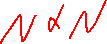 N α N